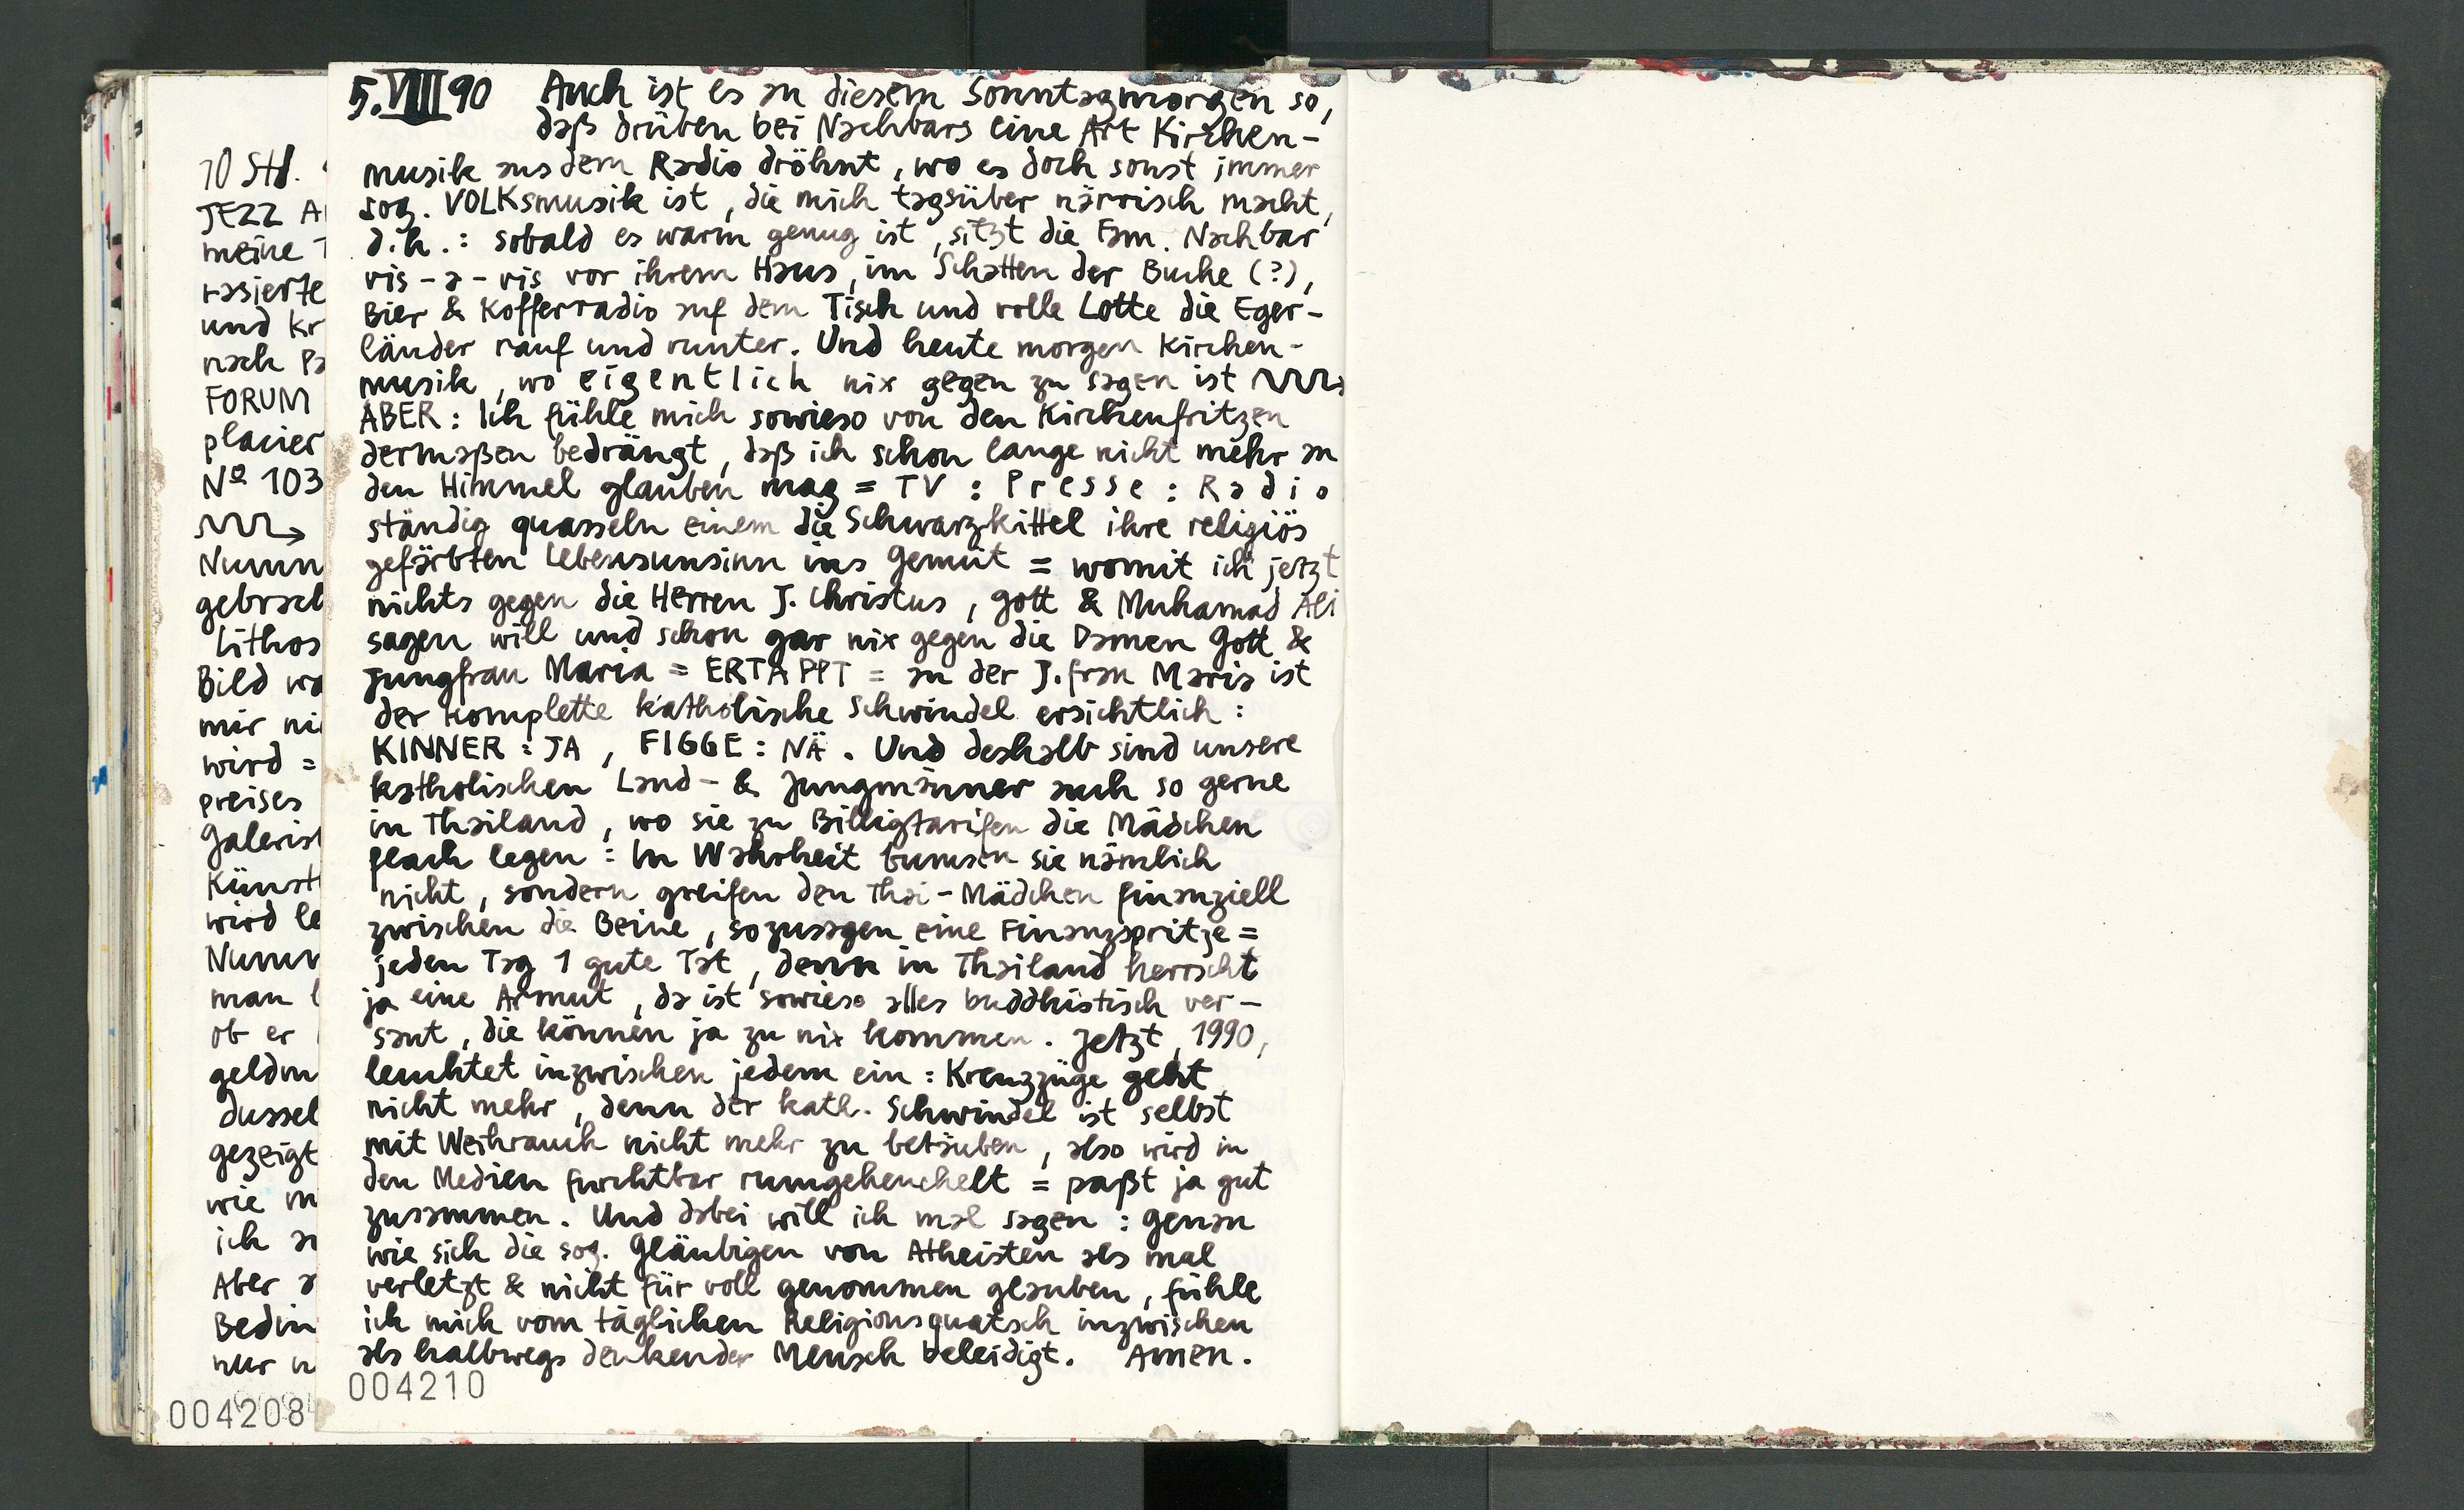 10 Std.
JEZZ A
meine T
rasierte
und kr
nach Pa
FORUM
placier
Nº 103
Numm
gebrach
Lithos
Bild wa
mir ni
wird =
preises
Galerist
Künstl
wird le
Numm
man l
ob er
geldm
dussel
gezeigt
wie m
ich an
Aber a
Bedin
nur n
004208
5.VIII 90 Auch ist es an diesem Sonntagmorgen so,
daß drüben bei Nachbars eine Art Kirchen-
musik aus dem Radio dröhnt, wo es doch sonst immer
sog. VOLKsmusik ist, die mich tagsüber närrisch macht,
d.h.: sobald es warm genug ist, sitzt die Fam. Nachbar
vis-a-vis vor ihrem Haus, im Schatten der Buche (?),
Bier & Kofferradio auf dem Tisch und volle Lotte die Eger-
länder rauf und runter. Und heute morgen Kirchen-
musik, wo eigentlich nix gegen zu sagen ist
ABER: Ich fühle mich sowieso von den Kirchenfritzen
dermaßen bedrängt, daß ich schon lange nicht mehr an
den Himmel glauben mag = TV : Presse : Radio
ständig quasseln einem die Schwarzkittel ihre religiös
gefärbten Lebensunsinn ins Gemüt = womit ich jetzt
nichts gegen die Herren J. Christus, Gott & Muhamad Ali
sagen will und schon gar nix gegen die Damen Gott &
Jungfrau Maria = ERTAPPT = an der J.frau Maria ist
der komplette katholische Schwindel ersichtlich:
KINNER: JA, FIGGE: NÄ. Und deshalb sind unsere
katholischen Land- & Jungmänner auch so gerne
in Thailand, wo sie zu Billigtarifen die Mädchen
flach legen: In Wahrheit bumsen sie nämlich
nicht, sondern greifen den Thai-Mädchen finanziell
zwischen die Beine, sozusagen eine Finanzspritze =
jeden Tag 1 gute Tat, denn in Thailand herrscht
ja eine Armut, da ist sowieso alles buddhistisch ver-
saut, die können ja zu nix kommen. Jetzt, 1990,
leuchtet inzwischen jedem ein: Kreuzzüge geht
nicht mehr, denn der kath. Schwindel ist selbst
mit Weihrauch nicht mehr zu betäuben, also wird in
den Medien furchtbar rumgeheuchelt = paßt ja gut
zusammen. Und dabei will ich mal sagen: Genau
wie sich die sog. Gläubigen von Atheisten als mal
verletzt & nicht für voll genommen glauben, fühle
ich mich vom täglichen Religionsquatsch inzwischen
als halbwegs denkender Mensch beleidigt. Amen.
004210